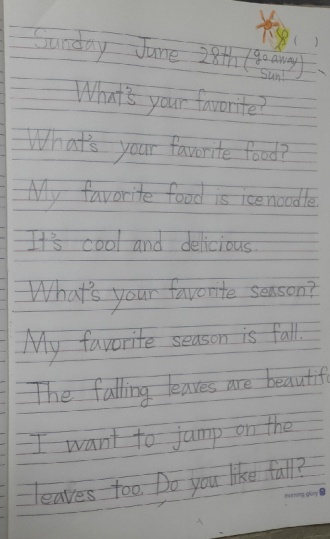 Sunday June 28th (go away
Sun!)
What's your favorite?
What's your favorite food?
My favorite food is icenoodle.
It's cool and delicious.
What's your favorite season?
My favorite season is fall.
The falling leaves are beautif
I want to jump on the
leaves too. Do you like fall?
morning glory